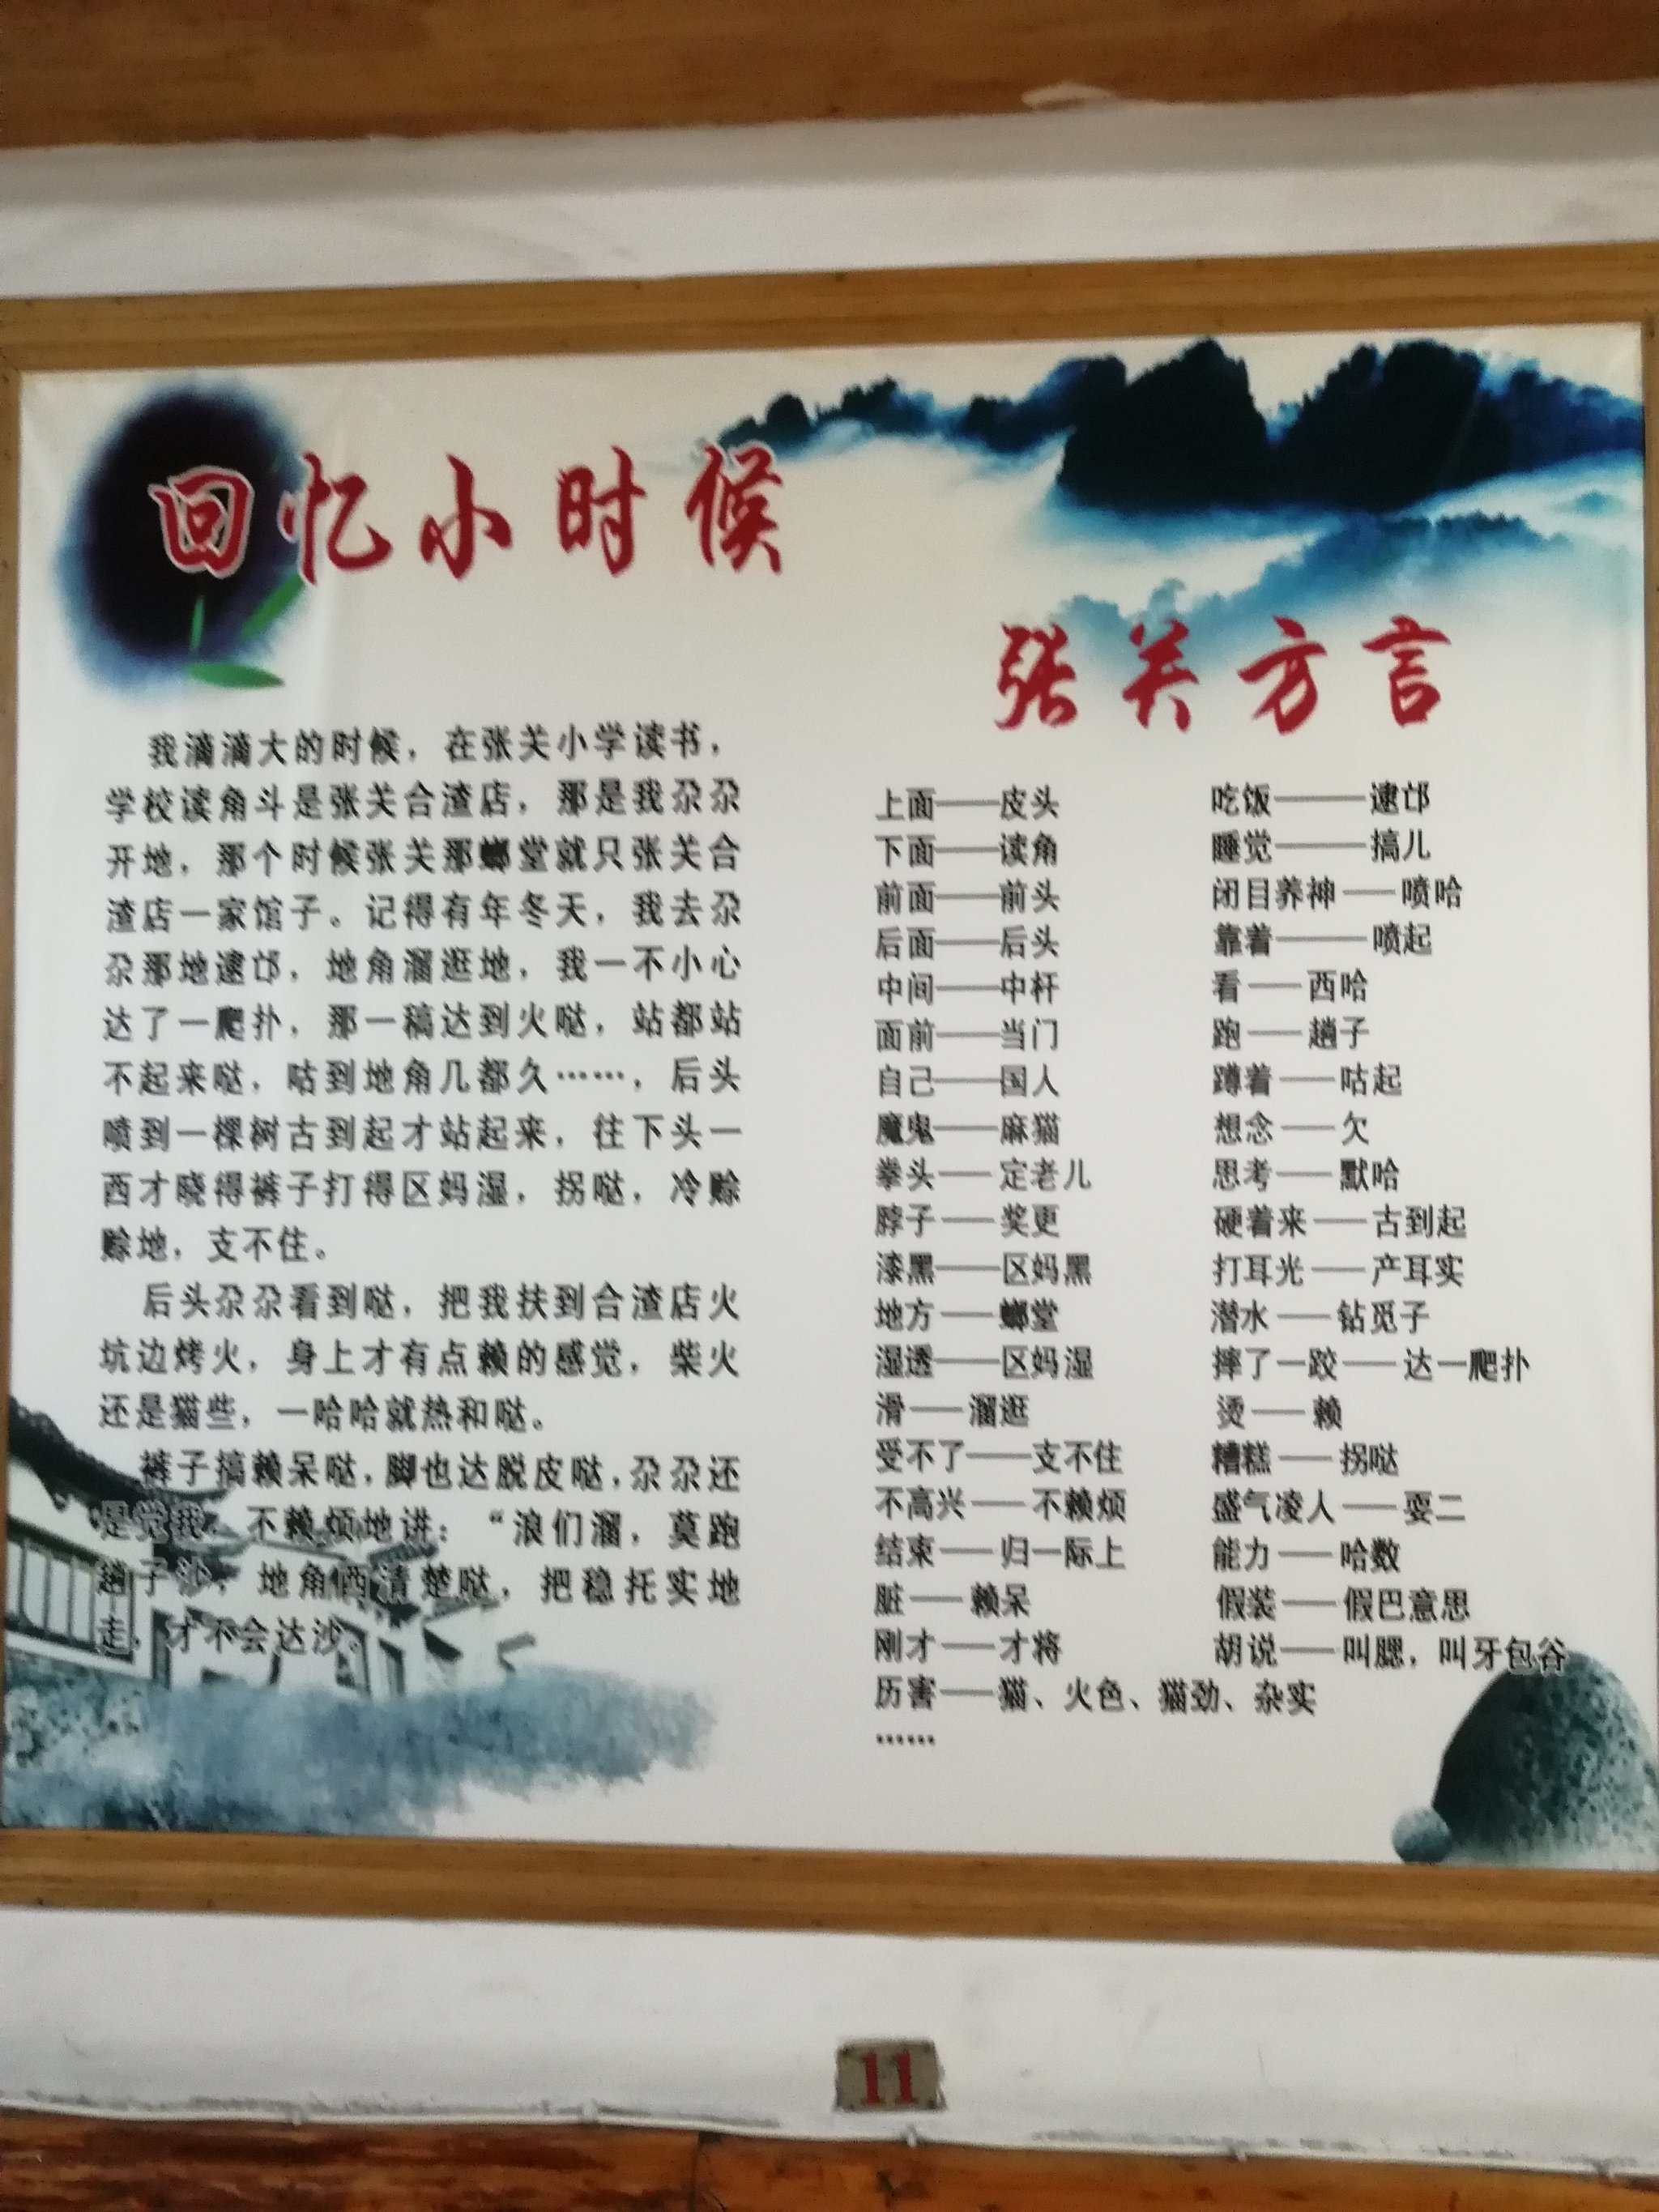 回忆小时候
我滴滴大的时候，在张关小学读书，
学校读角斗是张关合渣店，那是我尕尕
开地，那个时候张关那螂堂就只张关合
渣店一家馆子。记得有年冬天，我去尕
尕那地逮邙，地角溜逛地，我一不小心
达了一爬扑，那一稿达到火哒，站都站
不起来哒，咕到地角几都久……，后头
喷到一棵树古到起才站起来，往下头一
西才晓得裤子打得区妈湿，拐哒，冷赊
赊地，支不住。
后头尕尕看到哒，把我扶到合渣店火
坑边烤火，身上才有点赖的感觉，柴火
还是猫些，一哈哈就热和哒。
裤子搞赖呆哒，脚也达脱皮哒，尕尕还
是觉我，不赖烦地讲：“浪们溜，莫跑
趟子沙，地角西清楚哒，把稳托实地
走，才不会达沙。
张关方言
上面——皮头
下面——读角
前面——前头
后面——后头
中间——中杆
面前——当门
自己——国人
魔鬼——麻猫
拳头——定老儿
脖子——奖更
漆黑——区妈黑
地方——螂堂
湿透——区妈湿
滑——溜逛
受不了——支不住
不高兴——不赖烦
结束——归一际上
脏——赖呆
刚才——才将
历害——猫、火色、猫劲、杂实
……
吃饭———逮邙
睡觉———搞儿
闭目养神——喷哈
靠着———喷起
看——西哈
跑——趟子
蹲着——咕起
想念——欠
思考——默哈
硬着来——古到起
打耳光——产耳实
潜水——钻觅子
摔了一跤——达一爬扑
烫——赖
糟糕——拐哒
盛气凌人——耍二
能力——哈数
假装——假巴意思
胡说——叫腮，叫牙包谷
11